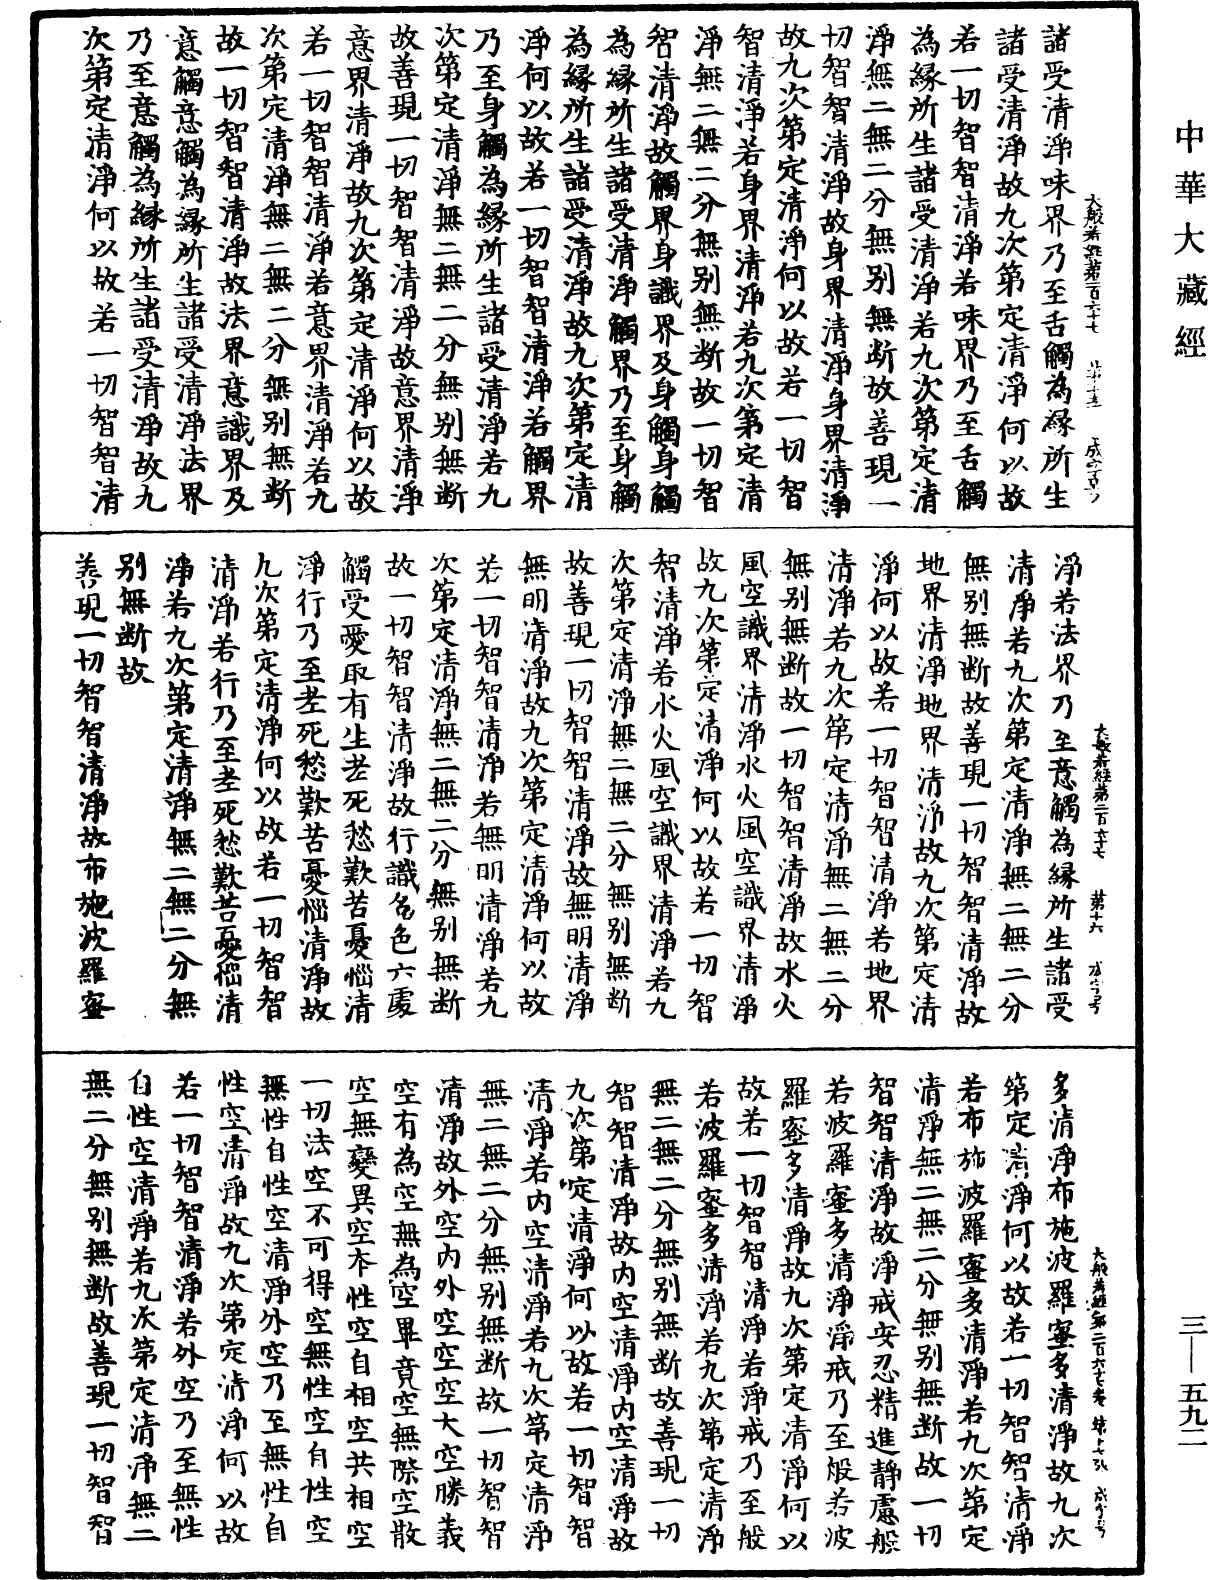 中華大藏經
諸受清淨味界乃至舌觸為緣所生
諸受清淨故九次第定清淨何以故
若一切智智清淨若味界乃至舌觸
為緣所生諸受清淨若九次第定清
淨無二無二分無別無斷故善現一
切智智清淨故身界清淨身界清淨
故九次第定清淨何以故若一切智
智清淨若身界清淨若九次第定清
淨無二無二分無別無斷故一切智
智清淨故觸界身識界及身觸身觸
為緣所生諸受清淨觸界乃至身觸
為緣所生諸受清淨故九次第定清
淨何以故若一切智智清淨若觸界
乃至身觸為緣所生諸受清淨若九
次第定清淨無二無二分無別無斷
故善現一切智智清淨故意界清淨
意界清淨故九次第定清淨何以故
若一切智智清淨若意界清淨若九
次第定清淨無二無二分無別無斷
故一切智智清淨故法界意識界及
意觸意觸為緣所生諸受清淨法界
乃至意觸為緣所生諸受清淨故九
次第定清淨何以故若一切智智清
大般若經第二百六十七
淨若法界乃至意觸為緣所生諸受
清淨若九次第定清淨無二無二分
無別無斷故善現一切智智清淨故
地界清淨地界清淨故九次第定清
淨何以故若一切智智清淨若地界
清淨若九次第定清淨無二無二分
無別無斷故一切智智清淨故水火
風空識界清淨水火風空識界清淨
故九次第定清淨何以故若一切智
智清淨若水火風空識界清淨若九
次第定清淨無二無二分無別無斷
故善現一切智智清淨故無明清淨
無明清淨故九次第定清淨何以故
若一切智智清淨若無明清淨若九
次第定清淨無二無二分無別無斷
故一切智智清淨故行識名色六處
觸受愛取有生老死愁歎苦憂惱清
淨行乃至老死愁歎苦憂惱清淨故
九次第定清淨何以故若一切智智
清淨若行乃至老死愁歎苦憂惱清
淨若九次第定清淨無二無二分無
別無斷故
善現一切智智清淨故布施波羅蜜
大般若經第二百六十七 第十六
多清淨布施波羅蜜多清淨故九次
第定清淨何以故若一切智智清淨
若布施波羅蜜多清淨若九次第定
清淨無二無二分無別無斷故一切
智智清淨故淨戒安忍精進靜慮般
若波羅蜜多清淨淨戒乃至般若波
羅蜜多清淨故九次第定清淨何以
故若一切智智清淨若淨戒乃至般
若波羅蜜多清淨若九次第定清淨
無二無二分無別無斷故善現一切
智智清淨故內空清淨內空清淨故
九次第定清淨何以故若一切智智
清淨若內空清淨若九次第定清淨
無二無二分無別無斷故一切智智
清淨故外空內外空空空大空勝義
空有為空無為空畢竟空無際空散
空無變異空本性空自相空共相空
一切法空不可得空無性空自性空
無性自性空清淨外空乃至無性自
性空清淨故九次第定清淨何以故
若一切智智清淨若外空乃至無性
自性空清淨若九次第定清淨無二
無二分無別無斷故善現一切智智
三—五九二